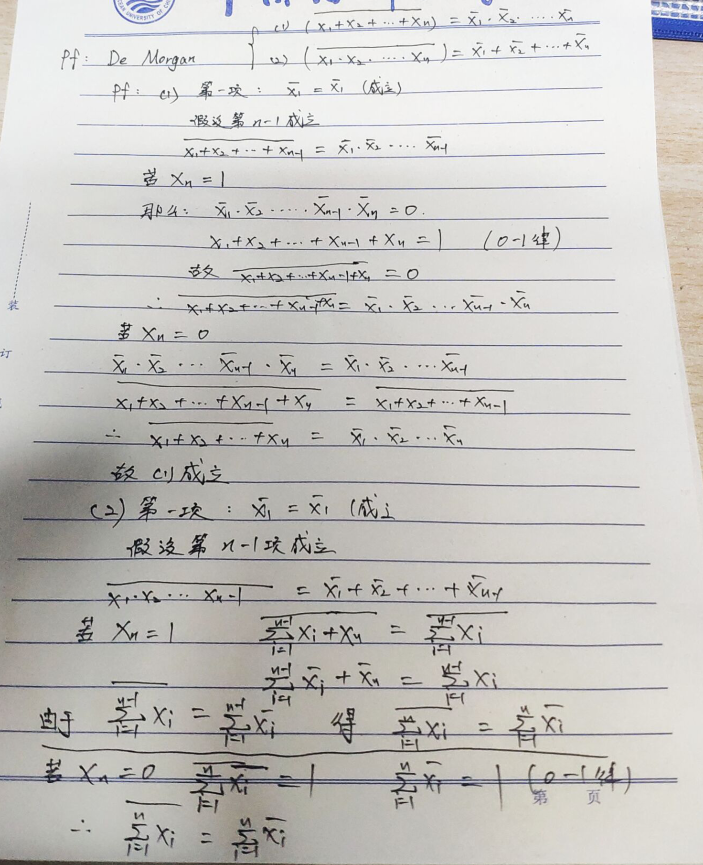 (1) (\overline{x₁+x₂+⋯+xₙ}) = x̄₁·x̄₂·⋯·x̄ₙ
Pf: De Morgan { (2) (\overline{x₁·x₂·⋯·xₙ}) = x̄₁+x̄₂+⋯+x̄ₙ
Pf: (1) 第一项: x̄₁ = x̄₁ (成立)
假设第 n-1 成立
\overline{x₁+x₂+⋯+xₙ₋₁} = x̄₁·x̄₂·⋯·x̄ₙ₋₁
若 xₙ = 1
那么: x̄₁·x̄₂·⋯·x̄ₙ₋₁·x̄ₙ = 0.
x₁+x₂+⋯+xₙ₋₁+xₙ = 1 (0-1律)
故 \overline{x₁+x₂+⋯+xₙ₋₁+xₙ} = 0
∴ \overline{x₁+x₂+⋯+xₙ₋₁+xₙ} = x̄₁·x̄₂⋯x̄ₙ₋₁·x̄ₙ
若 xₙ = 0
x̄₁·x̄₂⋯x̄ₙ₋₁·x̄ₙ = x̄₁·x̄₂·⋯x̄ₙ₋₁
\overline{x₁+x₂+⋯+xₙ₋₁+xₙ} = \overline{x₁+x₂+⋯+xₙ₋₁}
∴ \overline{x₁+x₂+⋯+xₙ} = x̄₁·x̄₂⋯x̄ₙ
故 (1) 成立
(2) 第一项: x̄₁ = x̄₁ (成立
假设第 n-1 项成立
\overline{x₁·x₂⋯xₙ₋₁} = x̄₁+x̄₂+⋯+x̄ₙ₋₁
若 xₙ = 1 \overline{∑_{i=1}^{n-1} xᵢ+xₙ} = \overline{∑_{i=1}^{n-1} xᵢ}
∑_{i=1}^{n-1} x̄ᵢ + x̄ₙ = ∑_{i=1}^{n-1} xᵢ
由于 \overline{∑_{i=1}^{n-1} xᵢ} = ∑_{i=1}^{n-1} x̄ᵢ 得 \overline{∑_{i=1}^{n} xᵢ} = ∑_{i=1}^{n} x̄ᵢ
若 xₙ = 0 \overline{∑_{i=1}^{n} x̄ᵢ} = 1 ∑_{i=1}^{n} x̄ᵢ = 1 (0-1律)
∴ \overline{∑_{i=1}^{n} xᵢ} = ∑_{i=1}^{n} x̄ᵢ
第 页
装
订